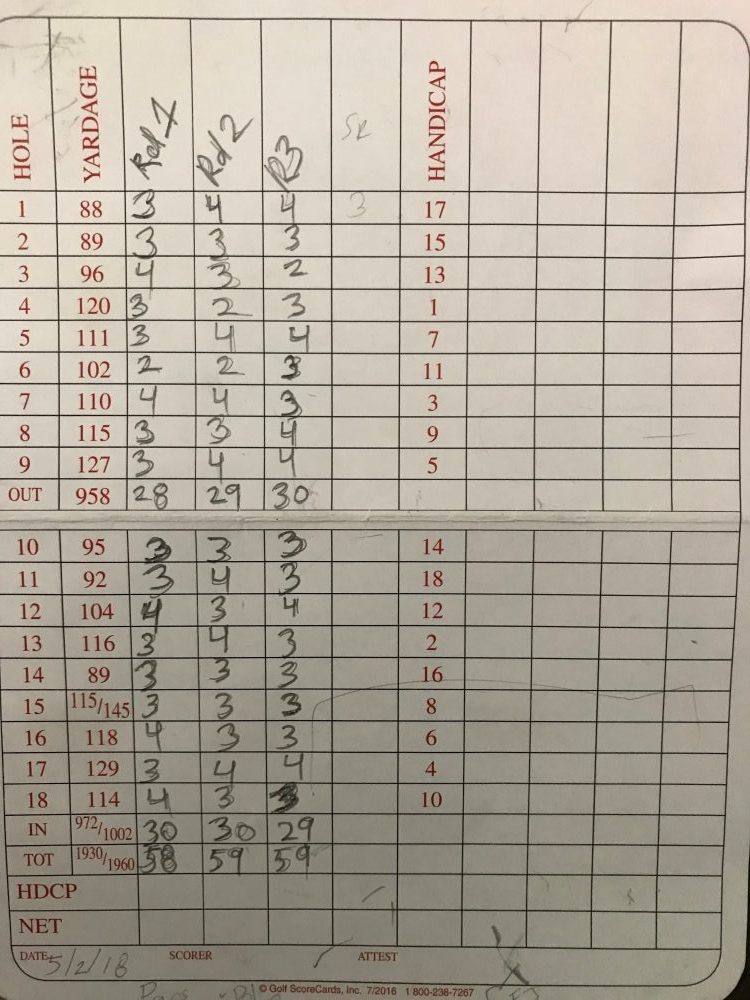 HOLE YARDAGE Rd 1 Rd 2 R3 SR HANDICAP
1 88 3 4 4 3 17
2 89 3 3 3 15
3 96 4 3 2 13
4 120 3 2 3 1
5 111 3 4 4 7
6 102 2 2 3 11
7 110 4 4 3 3
8 115 3 3 4 9
9 127 3 4 4 5
OUT 958 28 29 30
10 95 3 3 3 14
11 92 3 4 3 18
12 104 4 3 4 12
13 116 3 4 3 2
14 89 3 3 3 16
15 115/145 3 3 3 8
16 118 4 3 3 6
17 129 3 4 4 4
18 114 4 3 3 10
IN 972/1002 30 30 29
TOT 1930/1960 58 59 59
HDCP
NET
DATE 5/2/18 SCORER ATTEST
© Golf ScoreCards, Inc. 7/2016 1 800-238-7267